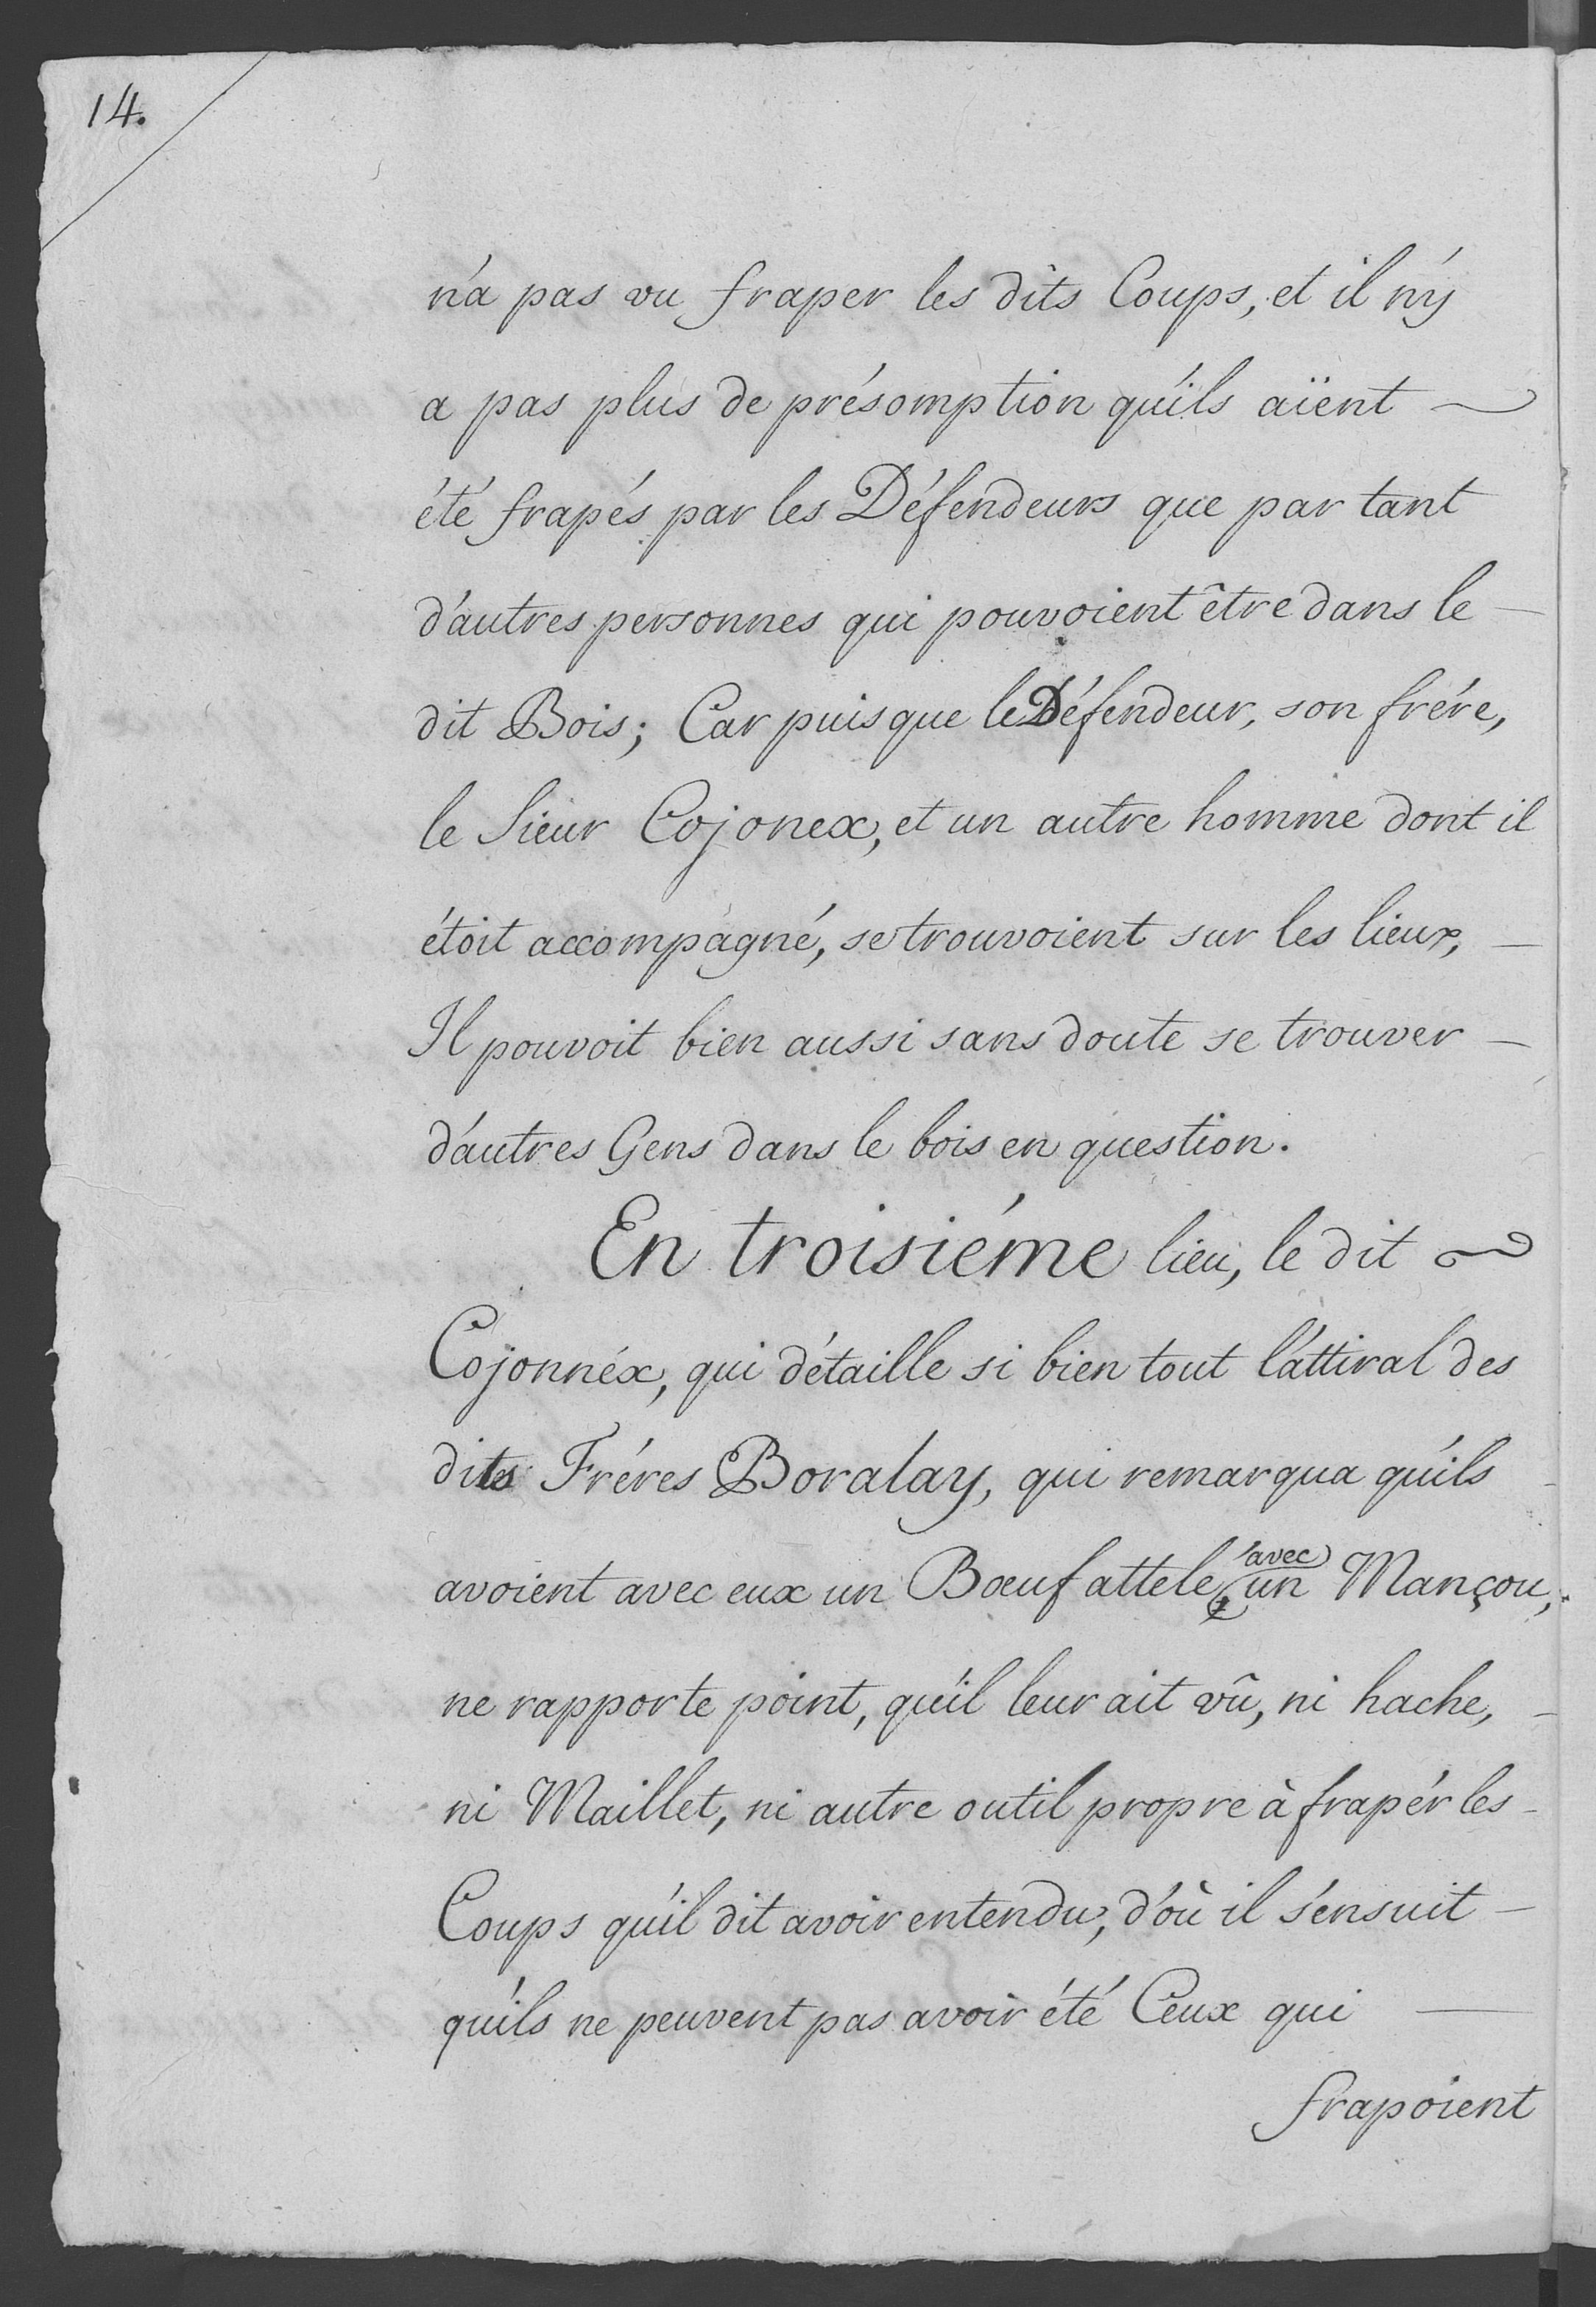 14.
n'a pas vu fraper les dits Coups, et il n'y
a pas plus de présomption qu'ils aïent
été frapés par les Défendeurs que par tant
d'autres personnes qui pouvoient être dans le
dit Bois; Car puisque le Défendeur, son frére,
le Sieur Cojonex, et un autre homme dont il
étoit accompagné, se trouvoient sur les lieux,
Il pouvoit bien aussi sans doute se trouver
d'autres Gens dans le bois en question.
En troisiéme lieu, le dit
Cojonnéx, qui détaille si bien tout l'attiral des
dits Fréres Boralay, qui remarqua qu'ils
avoient avec eux un Bœuf attelé, avec un Mançou,
ne rapporte point, qu'il leur ait vû, ni hache,
ni Maillet, ni autre outil propre à frapér les
Coups qu'il dit avoir entendu, d'où il s'ensuit
qu'ils ne peuvent pas avoir été Ceux qui
frapoient